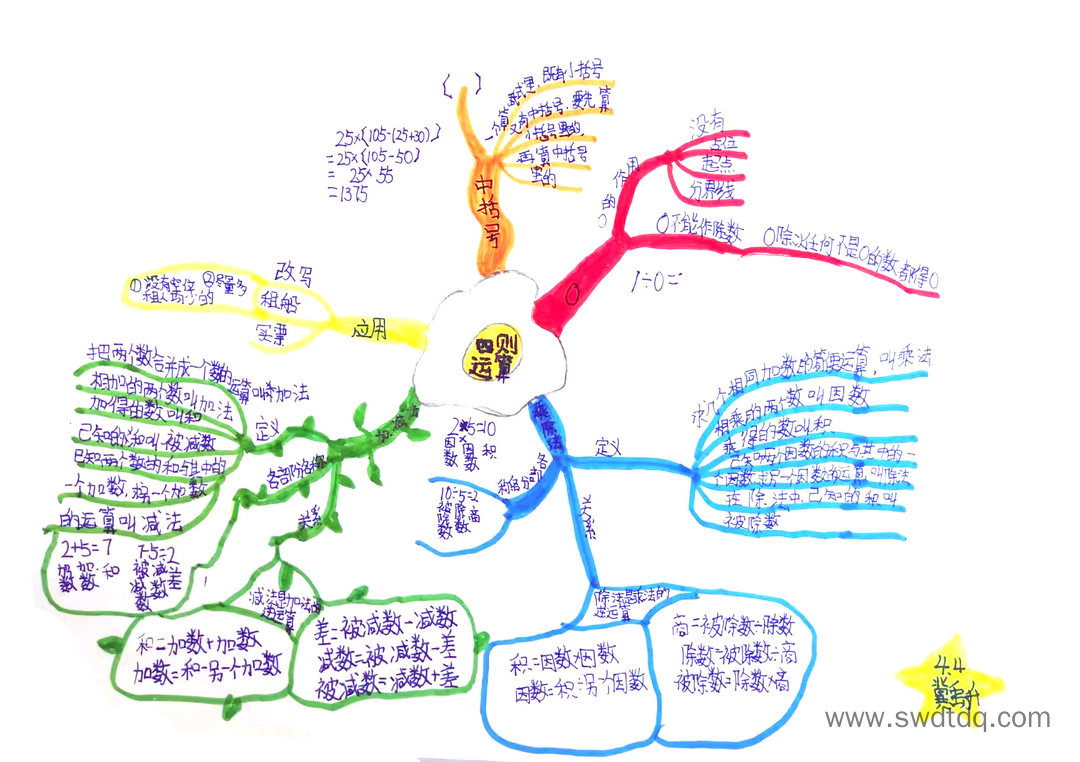 四则
运算
中括号
[ ]
一个算式里,既有小括号
又有中括号,要先算
小括号里的,
再算中括号
里的
25×[105-(25+30)]
=25×(105-50)
= 25×55
=1375
0
0的作用
没有
占位
起点
分界线
0不能作除数
0除以任何不是0的数都得0
1÷0=
应用
改写
租船
①没有空位 ②尽量多
实票
加减法
定义
把两个数合并成一个数的运算叫加法
相加的两个数叫加法
加得的数叫和
已知的和叫被减数
已知两个数的和与其中的
一个加数,求另一个加数
的运算叫减法
各部分名称
2+5=7
加 加 和
数 数
7-5=2
被 减 差
减 数
数
关系
减法是加法的
逆运算
积=加数+加数
加数=和-另一个加数
差=被减数-减数
减数=被减数-差
被减数=减数+差
乘除法
定义
求几个相同加数的简便运算,叫乘法
相乘的两个数叫因数
乘得的数叫积
已知两个因数的积与其中的一
个因数,求另一个因数的运算,叫除法
在除法中,已知的积叫
被除数
2×5=10
因 因 积
数 数
10÷5=2
被 除 商
除 数
数
关系
除法是乘法的
逆运算
积=因数×因数
因数=积÷另个因数
商=被除数÷除数
除数=被除数÷商
被除数=除数×商
4.4
www.swdtdq.com